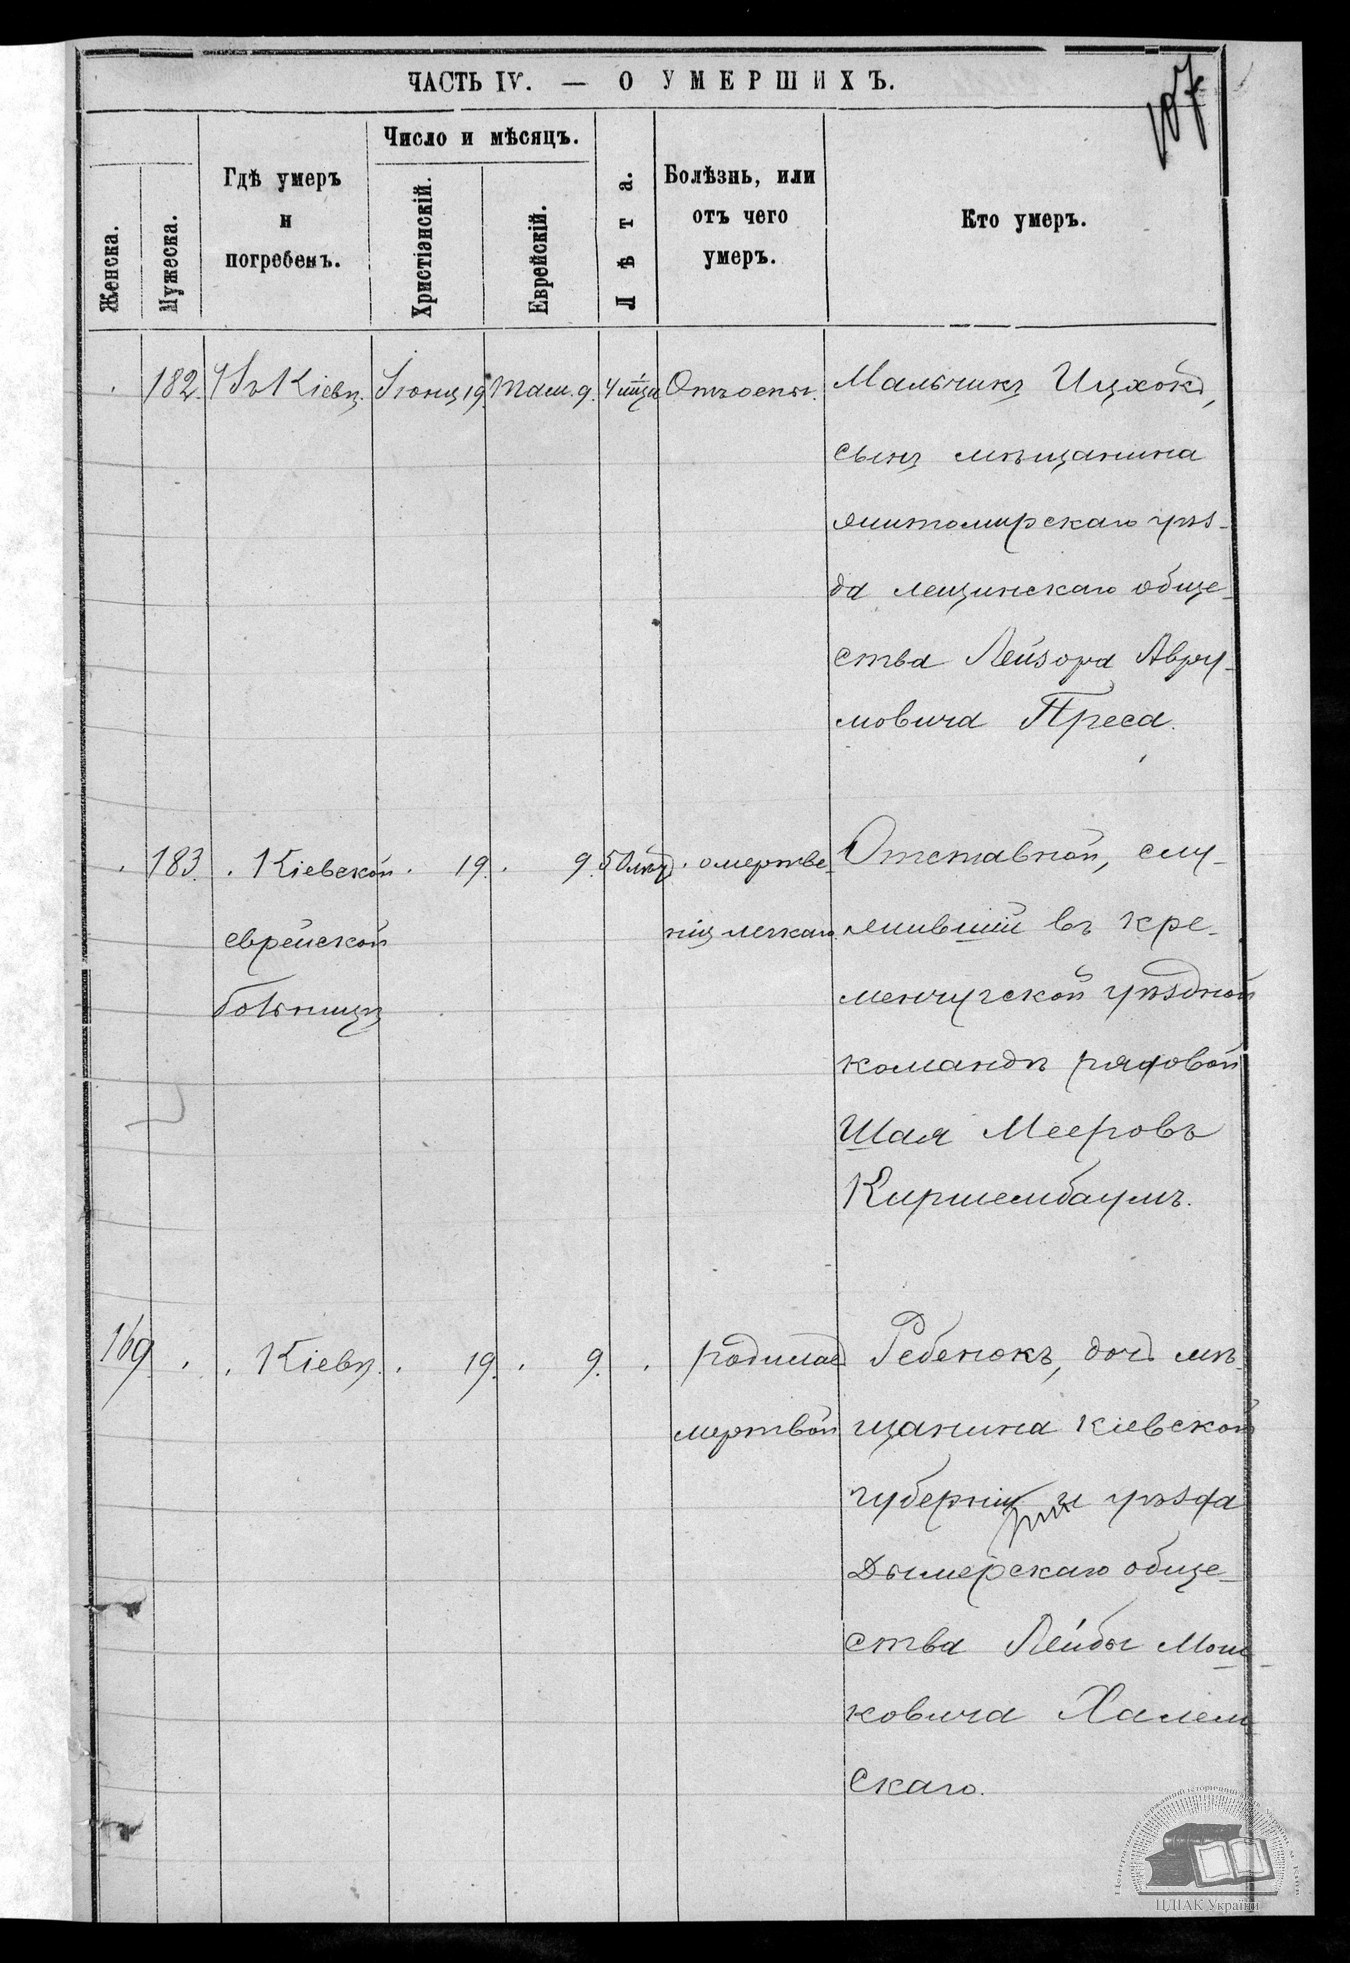 ЧАСТЬ IV. — О УМЕРШИХЪ.
Женска.
Мужеска.
Гдѣ умеръ
и
погребенъ.
Число и мѣсяцъ.
Христіанскій.
Еврейскій.
Лѣта.
Болѣзнь, или
отъ чего
умеръ.
Кто умеръ.
182. Въ Кіевѣ. Іюня 19. Там. 9. 4 мѣц Отъ оспы. Мальчикъ Ицхокъ,
сынъ мѣщанина
житомирскаго уѣз-
да лещинскаго обще-
ства Лейзора Авру-
мовича Преса.
183. Кіевской 19. 9. 50 лѣтъ омертве- Отставной, слу-
еврейской нія легкаго. жившій въ кре-
больницѣ менчугской уѣздной
командѣ рядовой
Шая Мееровъ
Киршембаумъ.
169. Кіевѣ. 19. 9. родилась Ребенокъ, дочь мѣ-
мертвой щанина кіевской
губерніи и уѣзда
Дымерскаго обще-
ства Лейбы Мош-
ковича Халем-
скаго.
ЦДІАК України